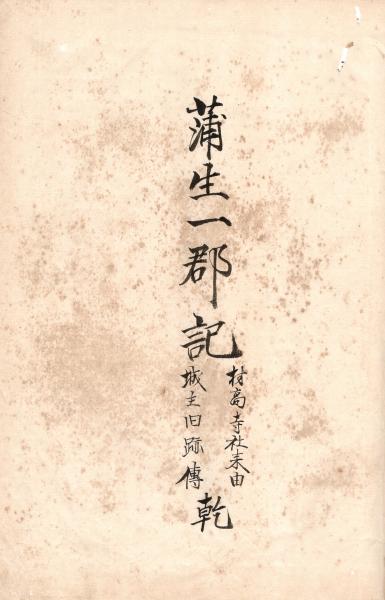 蒲生一郡記
村高寺社来由
城主旧跡傳
乾